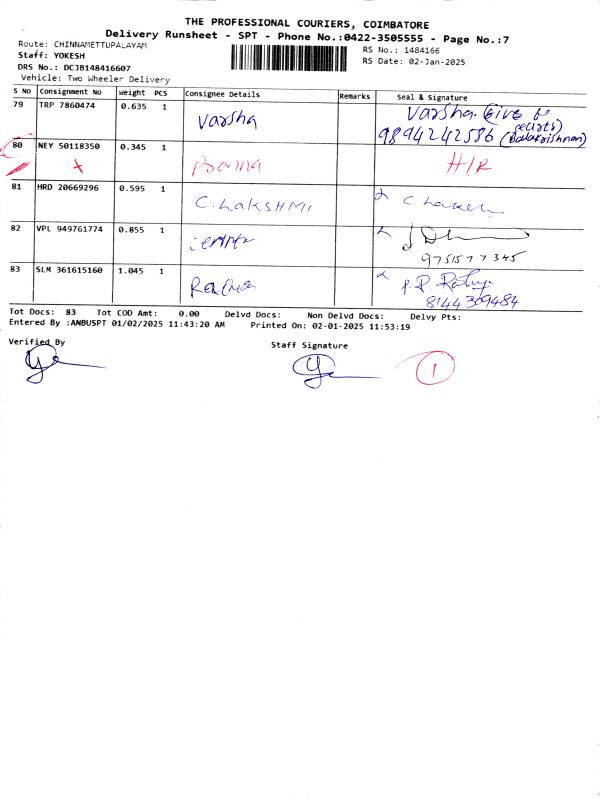 THE PROFESSIONAL COURIERS, COIMBATORE
Delivery Runsheet - SPT - Phone No.:0422-3505555 - Page No.:7
Route: CHINNAMETTUPALAYAM
RS No.: 1484166
Staff: YOKESH
RS Date: 02-Jan-2025
DRS No.: DCJB148416607
Vehicle: Two Wheeler Delivery
S No Consignment No Weight PCS Consignee Details Remarks Seal & Signature
79 TRP 7860474 0.635 1 Varsha Varsha. Give to
9894242586 (Balakrishnan)
80 NEY 50118350 0.345 1 H/R
81 HRD 20669296 0.595 1 C. LAKSHMI
82 VPL 949761774 0.855 1
9751577345
83 SLM 361615160 1.045 1
8144309484
Tot Docs: 83 Tot COD Amt: 0.00 Delvd Docs: Non Delvd Docs: Delvy Pts:
Entered By :ANBUSPT 01/02/2025 11:43:20 AM Printed On: 02-01-2025 11:53:19
Verified By Staff Signature
1